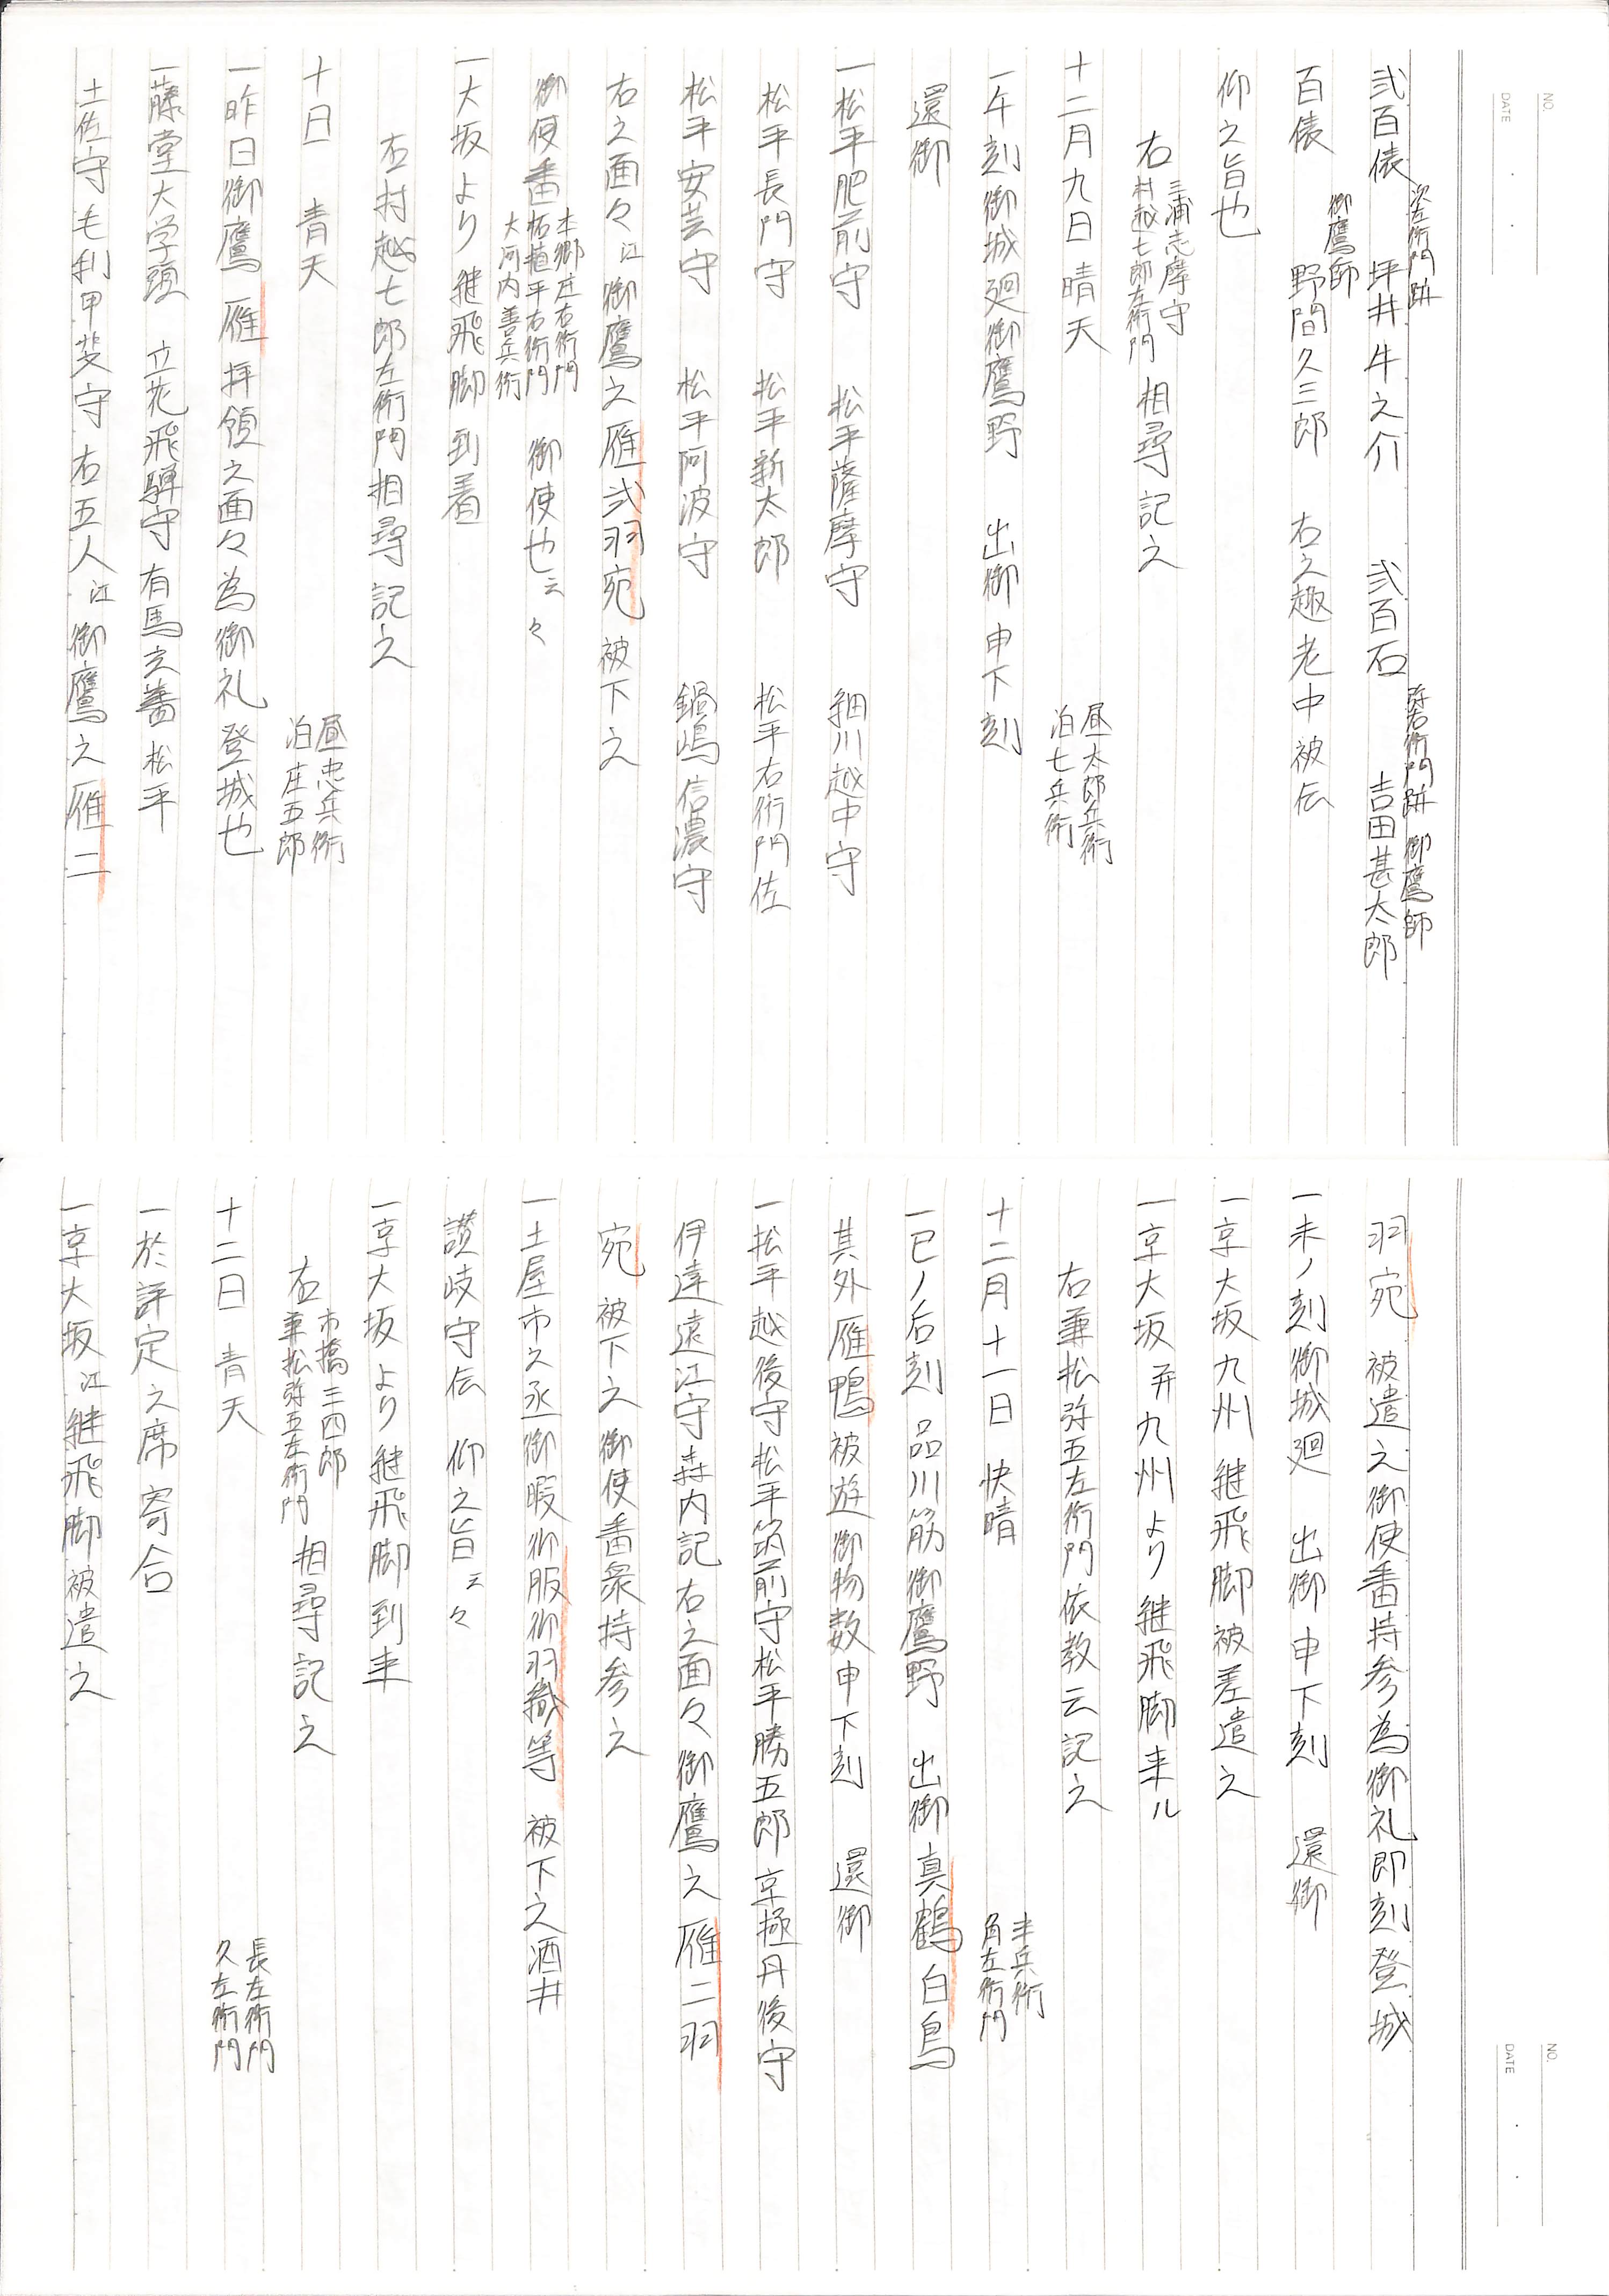 NO.
DATE
次左衛門跡
弥右衛門跡 御鷹師
弐百俵 坪井牛之介 弐百石 吉田甚太郎
御鷹師
百俵 野間久三郎 右之趣老中被伝
仰之旨也
三浦志摩守
右 村越七郎左衛門 相尋記之
十二月九日 晴天 昼太郎兵衛
泊七兵衛
一午刻御城廻御鷹野 出御申下刻
還御
一松平肥前守 松平薩摩守 細川越中守
松平長門守 松平新太郎 松平右衛門佐
松平安芸守 松平阿波守 鍋嶋信濃守
右之面々江御鷹之雁弐羽宛被下之
本郷庄右衛門
御使番 柘植平右衛門 御使也云々
大河内善兵衛
一大坂より継飛脚到着
右村越七郎左衛門相尋記之
十日 青天 昼忠兵衛
泊庄五郎
一昨日御鷹雁拝領之面々為御礼登城也
一藤堂大学頭 立花飛騨守 有馬玄蕃 松平
土佐守 毛利甲斐守 右五人江御鷹之雁二
NO.
DATE
羽宛 被遣之御使番持参為御礼即刻登城
一未ノ刻御城廻 出御申下刻 還御
一京大坂九州 継飛脚被差遣之
一京大坂并九州より継飛脚来ル
右兼松弥五左衛門依教云記之
十二月十一日 快晴 半兵衛
角左衛門
一巳ノ后刻 品川筋御鷹野 出御真鶴白鳥
其外雁鴨被遊御物数申下刻 還御
一松平越後守松平筑前守松平勝五郎京極丹後守
伊達遠江守森内記右之面々御鷹之雁二羽
宛 被下之御使番衆持参之
一土屋市之丞御暇御服御羽織等 被下之酒井
讃岐守伝 仰之旨云々
一京大坂より継飛脚到来
市橋三四郎
右 兼松弥五左衛門 相尋記之
十二日 青天 長左衛門
久左衛門
一於評定之席寄合
一京大坂江継飛脚被遣之